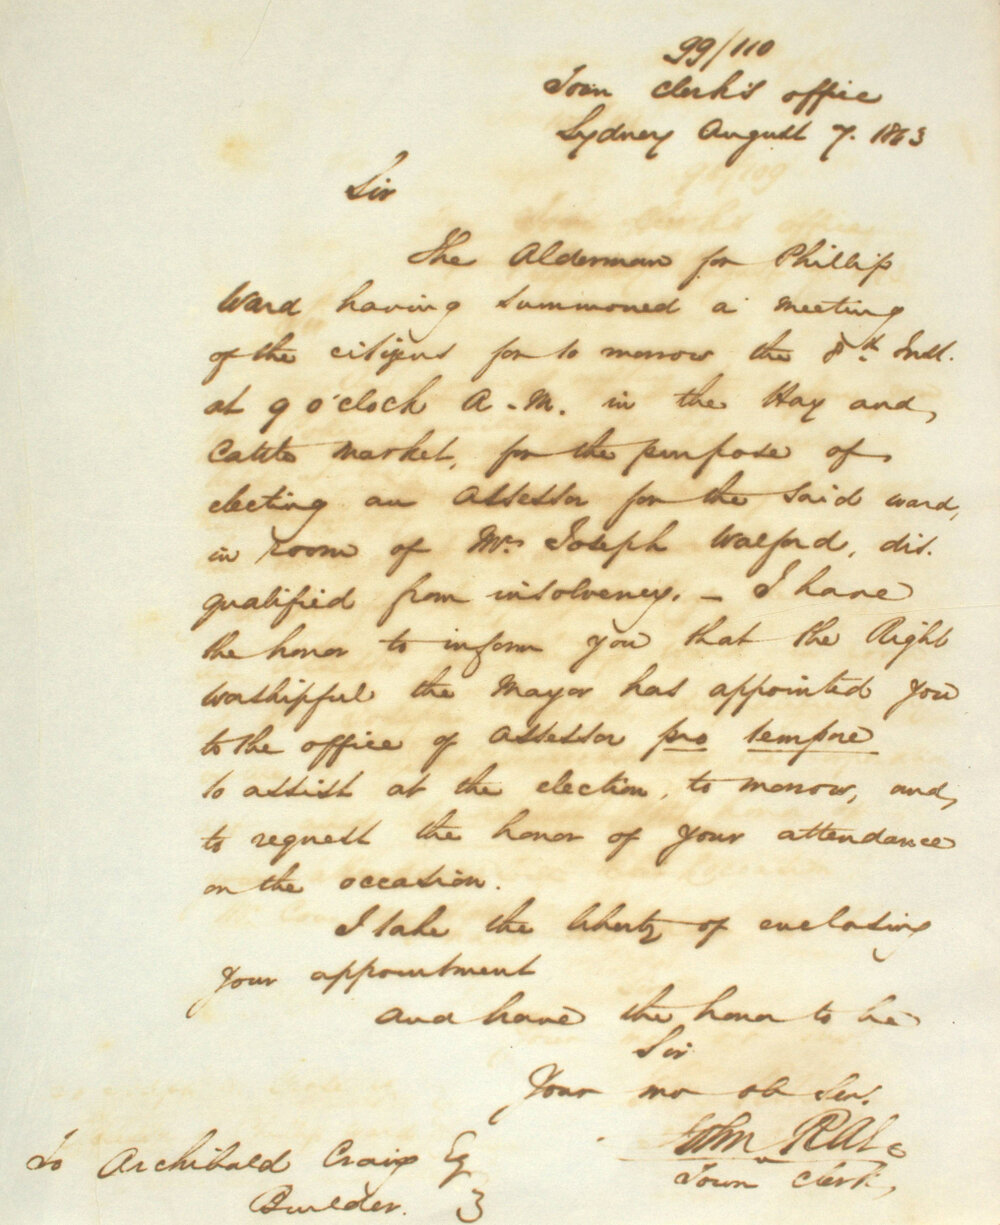 99/110
Town Clerk's office
Sydney August 7. 1863
Sir
The Alderman for Phillip
Ward having summoned a meeting
of the citizens for to morrow the 8th Inst.
at 9 o'clock A.M. in the Hay and,
Cattle Market, for the purpose of,
electing an Assessor for the said ward,
in room of Mr. Joseph Walford, dis.
qualified from insolvency. - I have
the honor to inform you that the Right
Worshipful the Mayor has appointed you
to the office of Assessor pro tempore
to assist at the election, to morrow, and,
to request the honor of your attendance
on the occasion.
I take the liberty of enclosing
your appointment
and have the honor to be
Sir
Your mo ob Ser.
John
Town Clerk,
To Archibald Craig Eq
Builder.